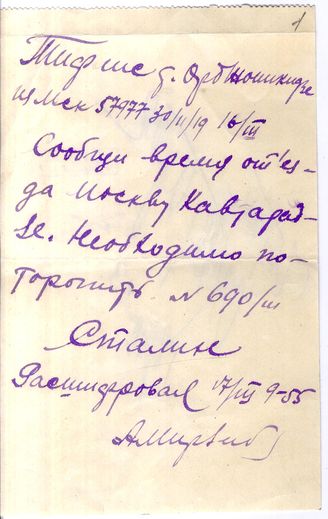 1
Тифлис т. Орджоникидзе
из Мск 57977 30/11/19 16/III
Сообщи время отъез-
да Москву Кавтарад-
зе. Необходимо по-
торопить. N 690/ш
Сталин
Расшифровал 17/III 9-55